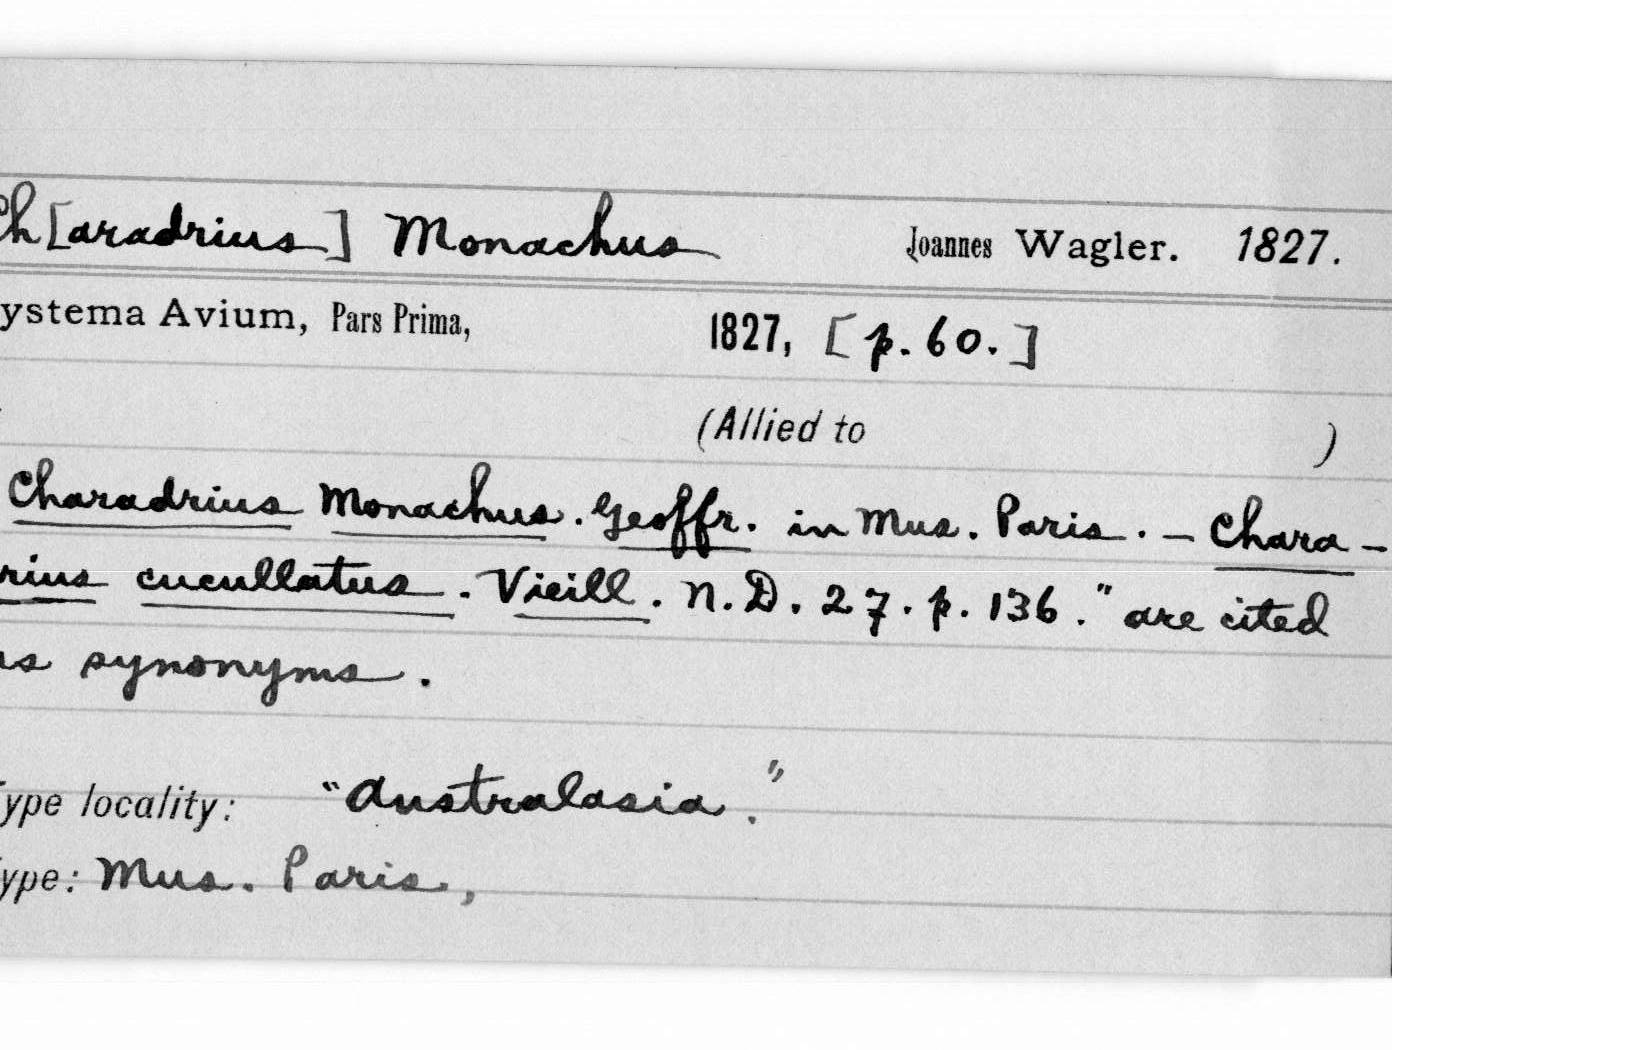 Ch[aradrius] Monachus Joannes Wagler. 1827.
ystema Avium, Pars Prima, 1827, [p. 60.]
(Allied to )
Charadrius Monachus. Geoffr. in Mus. Paris. — Chara-
rius cucullatus. Vieill. N. D. 27. p. 136." are cited
as synonyms.
ype locality: "Australasia."
ype: Mus. Paris,